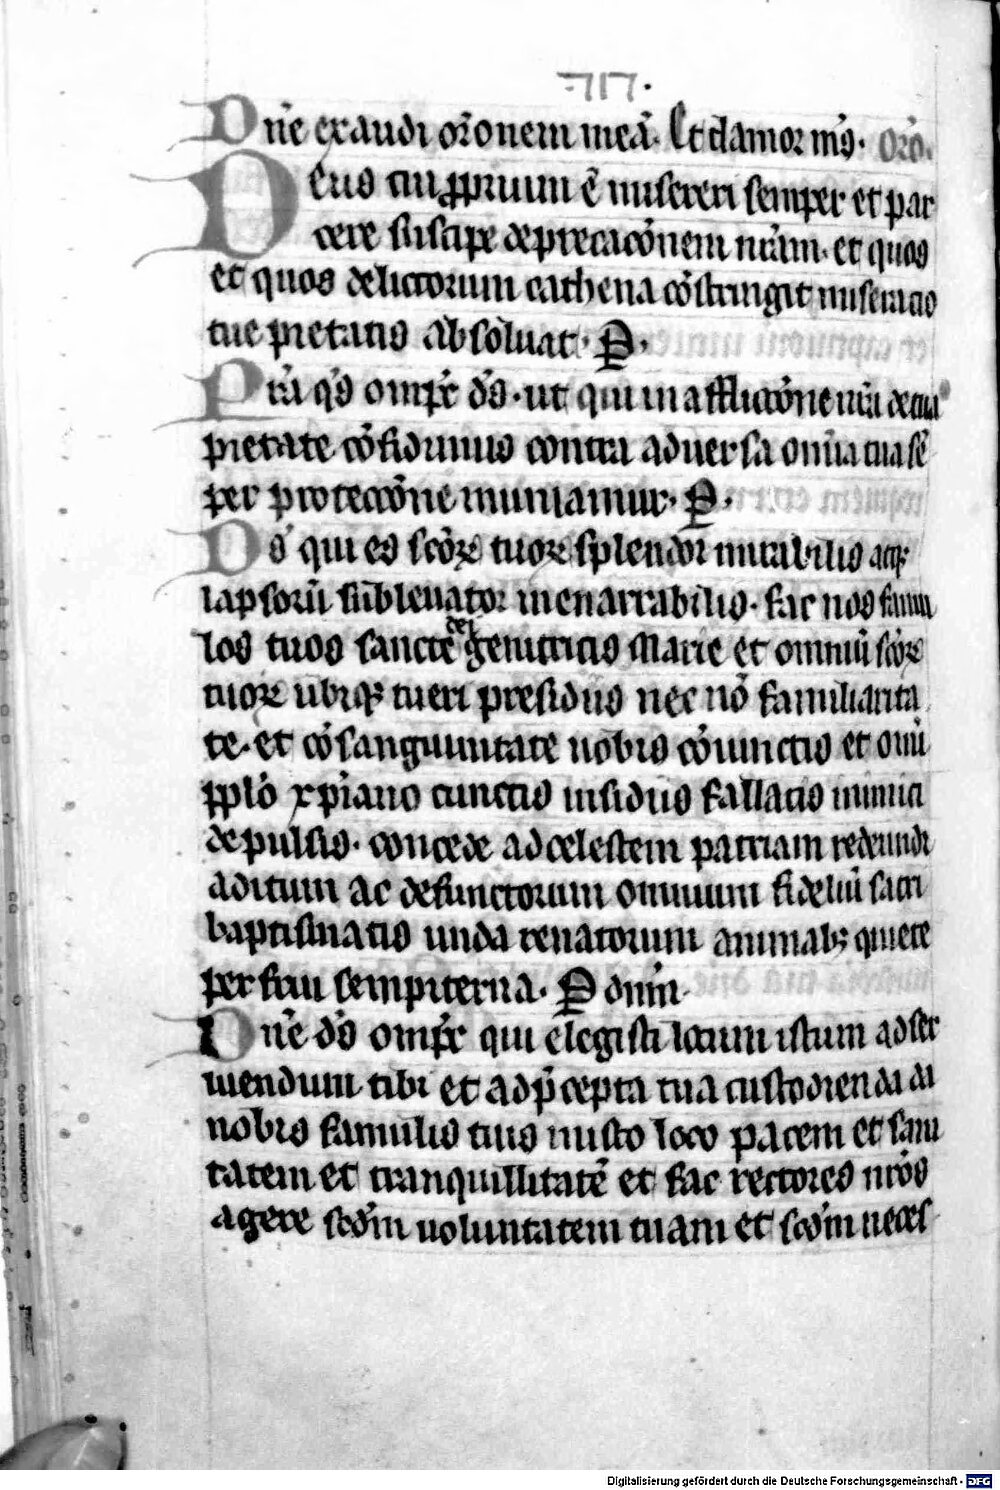 ·VII·
Dn̄e exaudi or̄onem meā. Et clamor m̄s. Or̄o.
Deus cui ꝓprium ē misereri semper et par
cere suscipe deprecac̄onem nr̄am. et quos
et quos delictorum cathena cōstringit miseracio
tue pietatis absoluat. P.
Pr̄a q̄s om̄ps d̄s. ut qui in afflicc̄one nr̄a de tua
pietate cōfidimus contra aduersa om̄ia tua sē
per protecc̄one muniamur. P.
Ds̄ qui es sc̄oꝝ tuoꝝ splendor mirabilis atqꝫ
lapsorū subleuator inenarrabilis. fac nos famu
los tuos sancte dei genitricis Marie et omniū sc̄oꝝ
tuoꝝ ubiqꝫ tueri presidiis nec nō familiarita
te. et cōsanguinitate nobis cōiunctis et om̄i
pplō xp̄iano cunctis insidiis fallacis inimici
depulsis. concede ad celestem patriam redeundi
aditum ac defunctorum omnium fideliū sacri
baptismatis unda renatorum animabꝫ quiete
perfrui sempiterna. P dnm̄.
Dn̄e d̄s om̄ps qui elegisti locum istum ad ser
uiendum tibi et ad p̄cepta tua custodienda da
nobis famulis tuis in isto loco pacem et sani
tatem et tranquillitatē et fac rectores nr̄os
agere scd̄m uoluntatem tuam et scd̄m neces
Digitalisierung gefördert durch die Deutsche Forschungsgemeinschaft - DFG